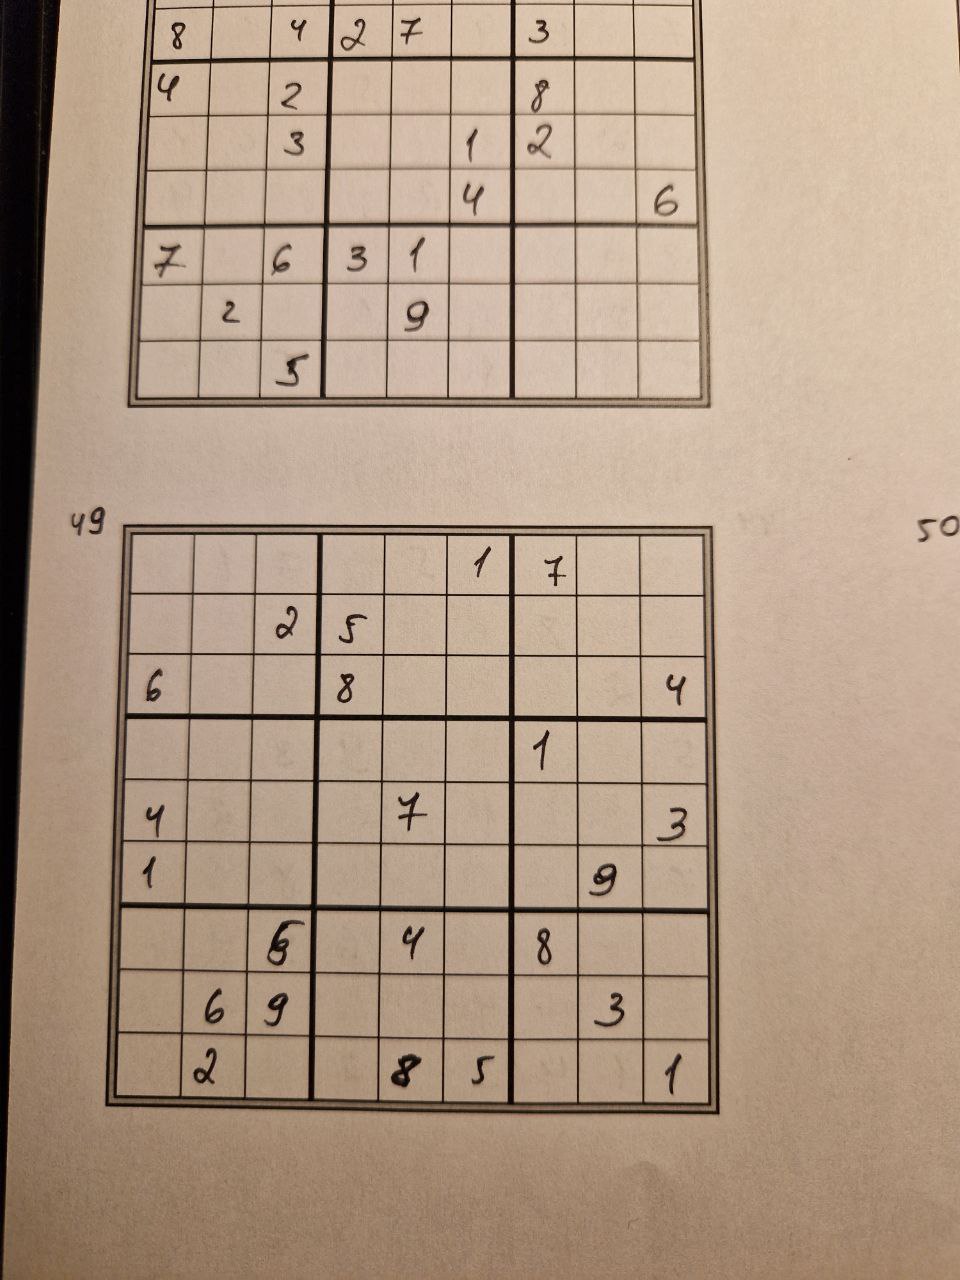 8 4 2 7 3
4 2 8
3 1 2
4 6
7 6 3 1
2 9
5
49 50
1 7
2 5
6 8 4
1
4 7 3
1 9
4 8
6 9 3
2 8 5 1